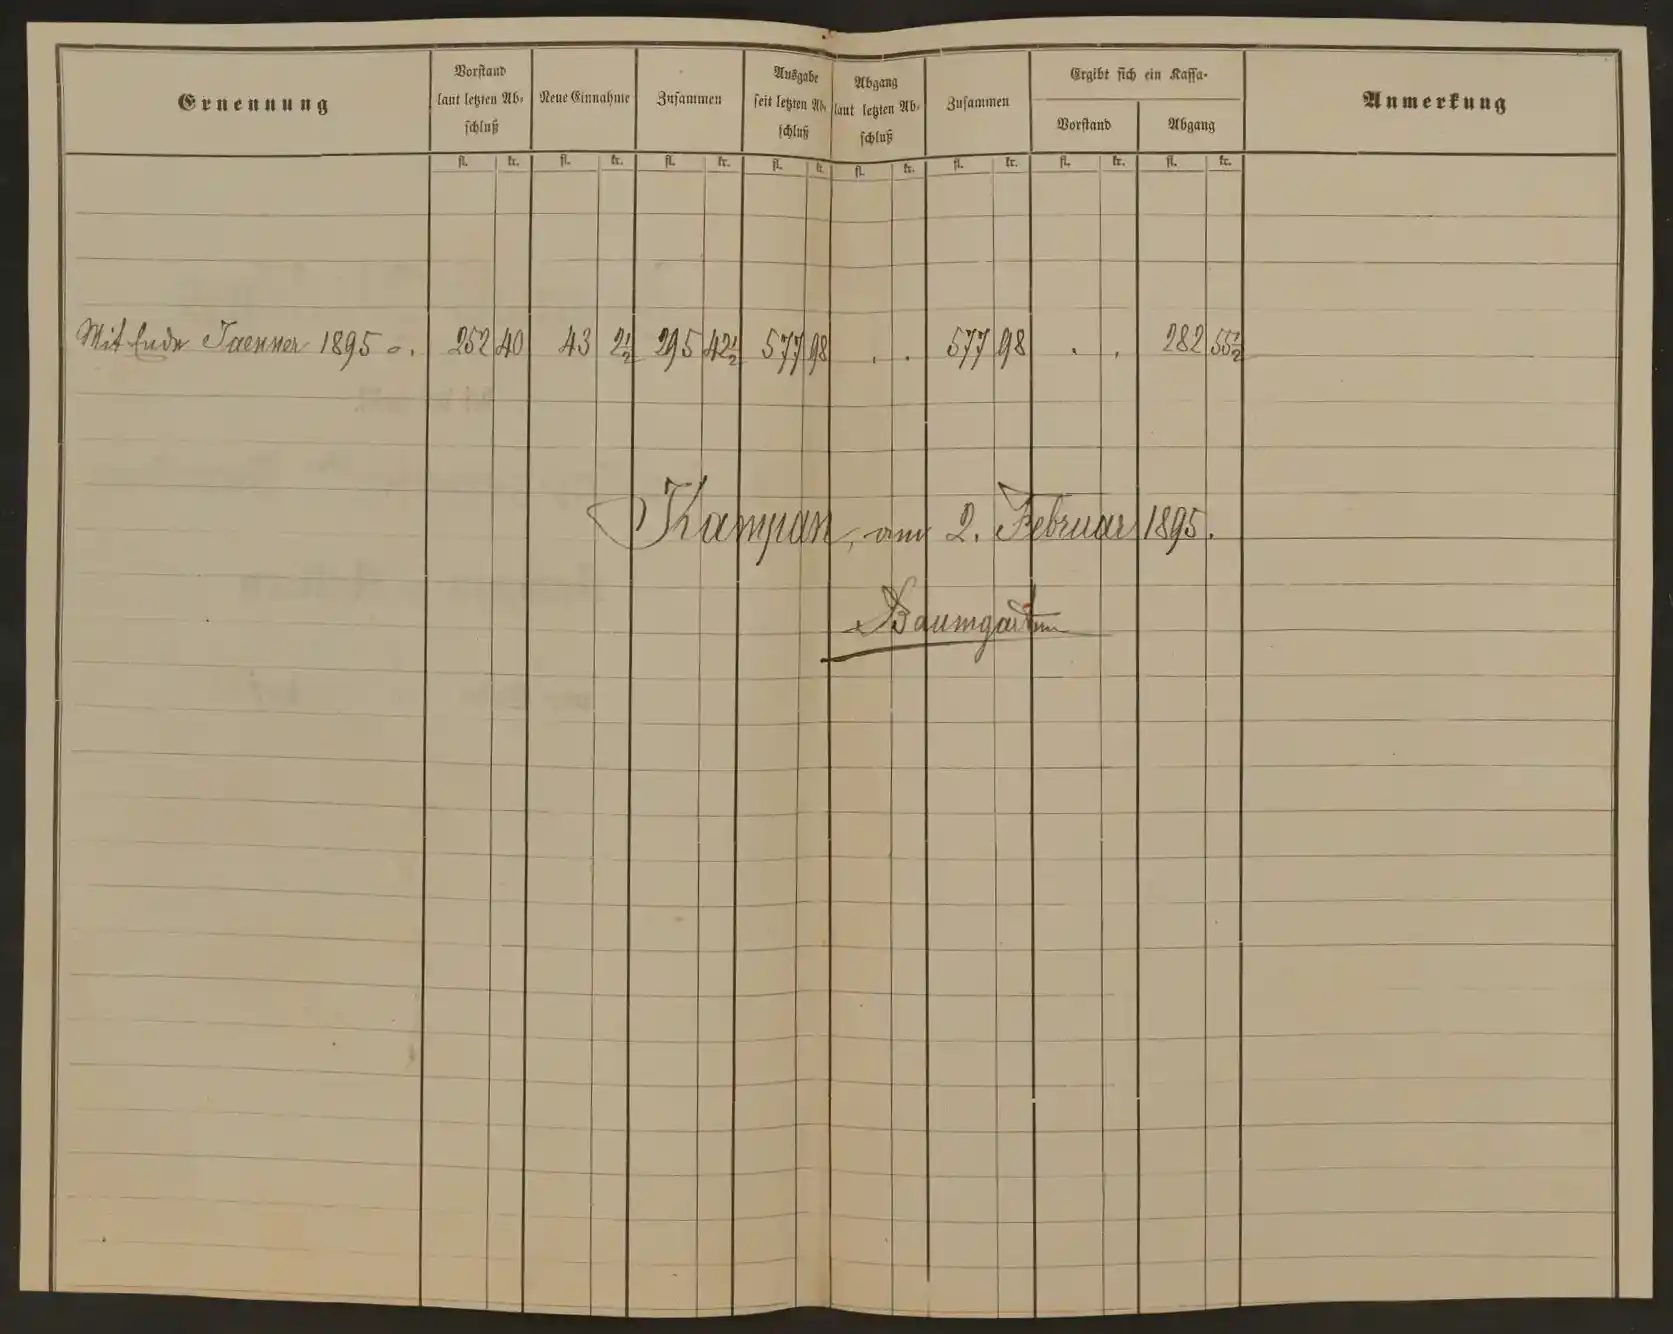 Ernennung
Vorstand laut letzten Ab-schluß
Neue Einnahme
Zusammen
Ausgabe seit letzten Ab-schluß
Abgang laut letzten Ab-schluß
Zusammen
Ergibt sich ein Kassa-
Vorstand
Abgang
Anmerkung
fl. kr. fl. kr. fl. kr. fl. kr. fl. kr. fl. kr. fl. kr. fl. kr.
Mit Ende Jaenner 1895 252 40 43 2½ 295 42½ 577 98 . . 577 98 . . 282 55½
Kampan, am 2. Februar 1895.
Baumgarten